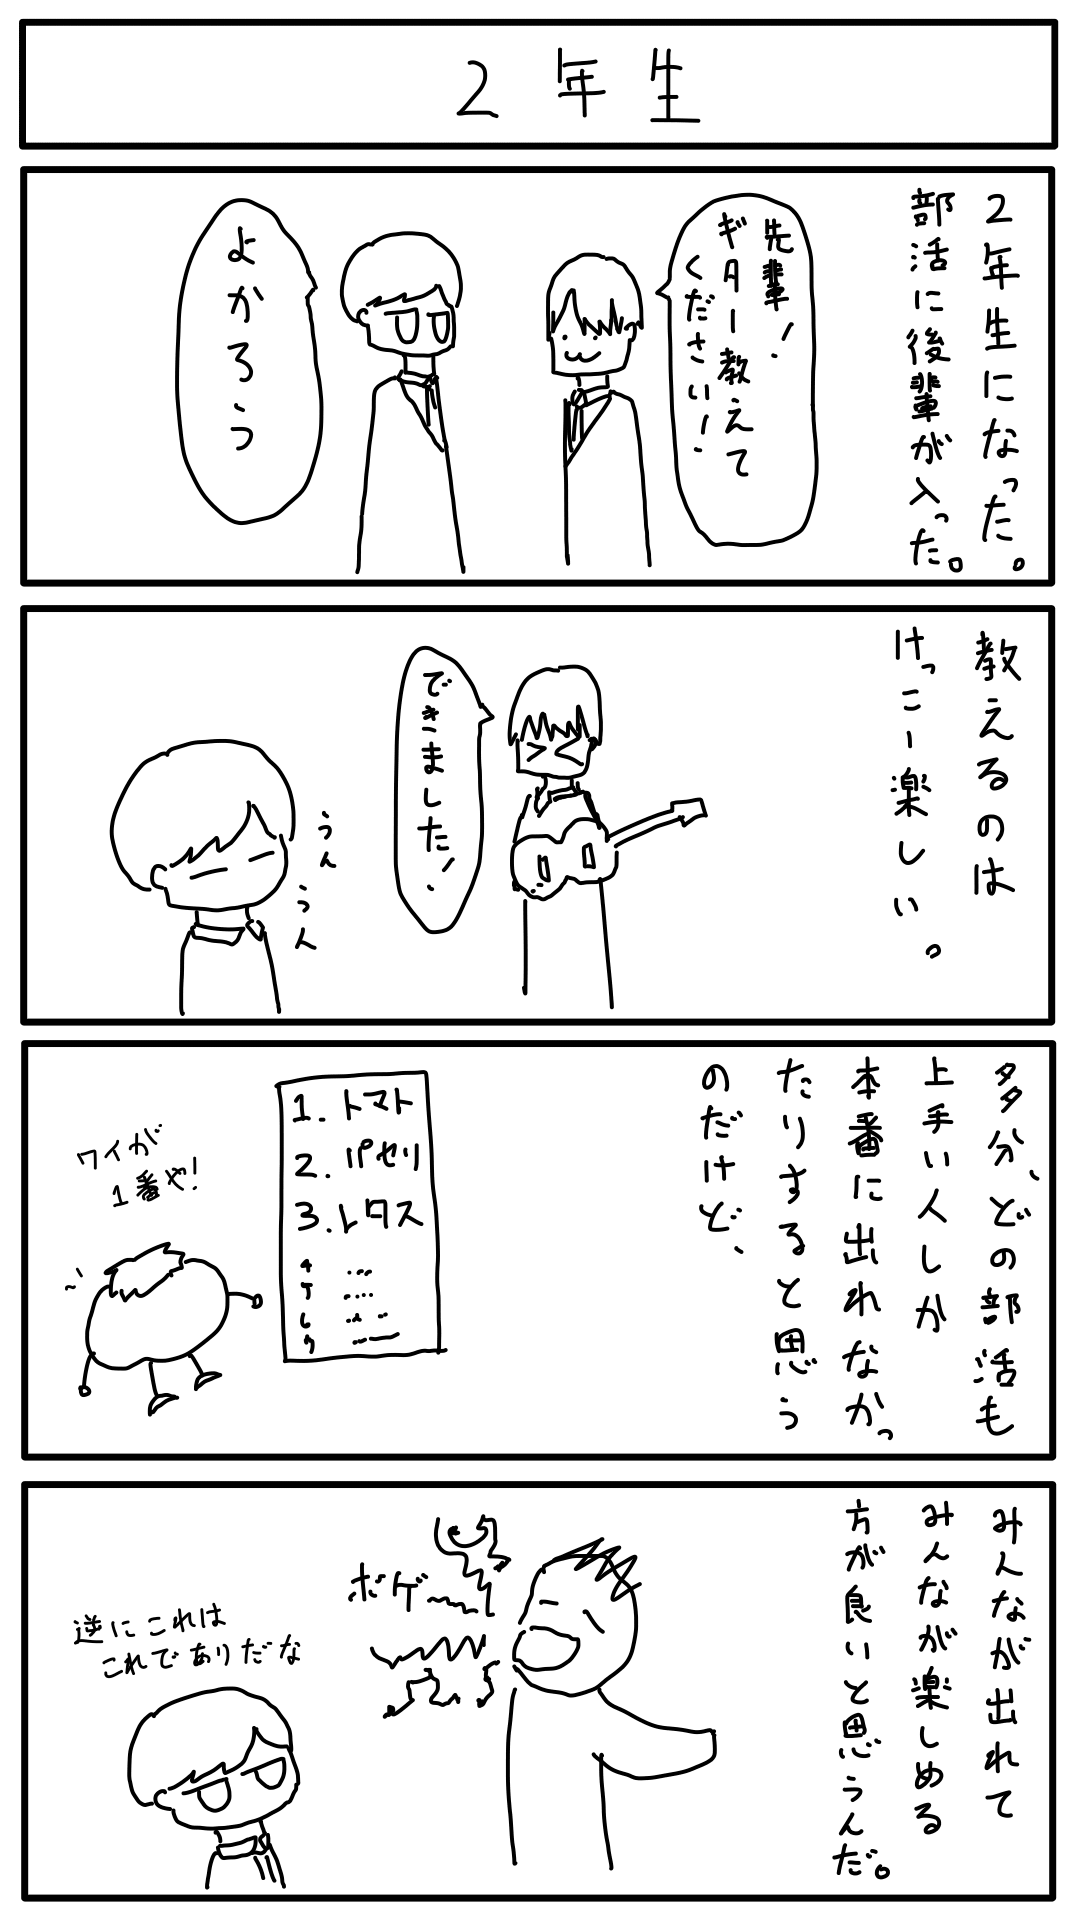 2年生
2年生になった。
部活に後輩が入った。
先輩!
ギター教えて
ください!
よかろう
教えるのは
けっこー楽しい。
できました!
うん
うん
多分、どの部活も
上手い人しか
本番に出れなかっ
たりすると思う
のだけど、
1. トマト
2. パセリ
3. レタス
4 ...
5 ....
6
7
ワイが
1番や!
みんなが出れて
みんなが楽しめる
方が良いと思うんだ。
ボゲ〜
逆にこれは
これでありだな